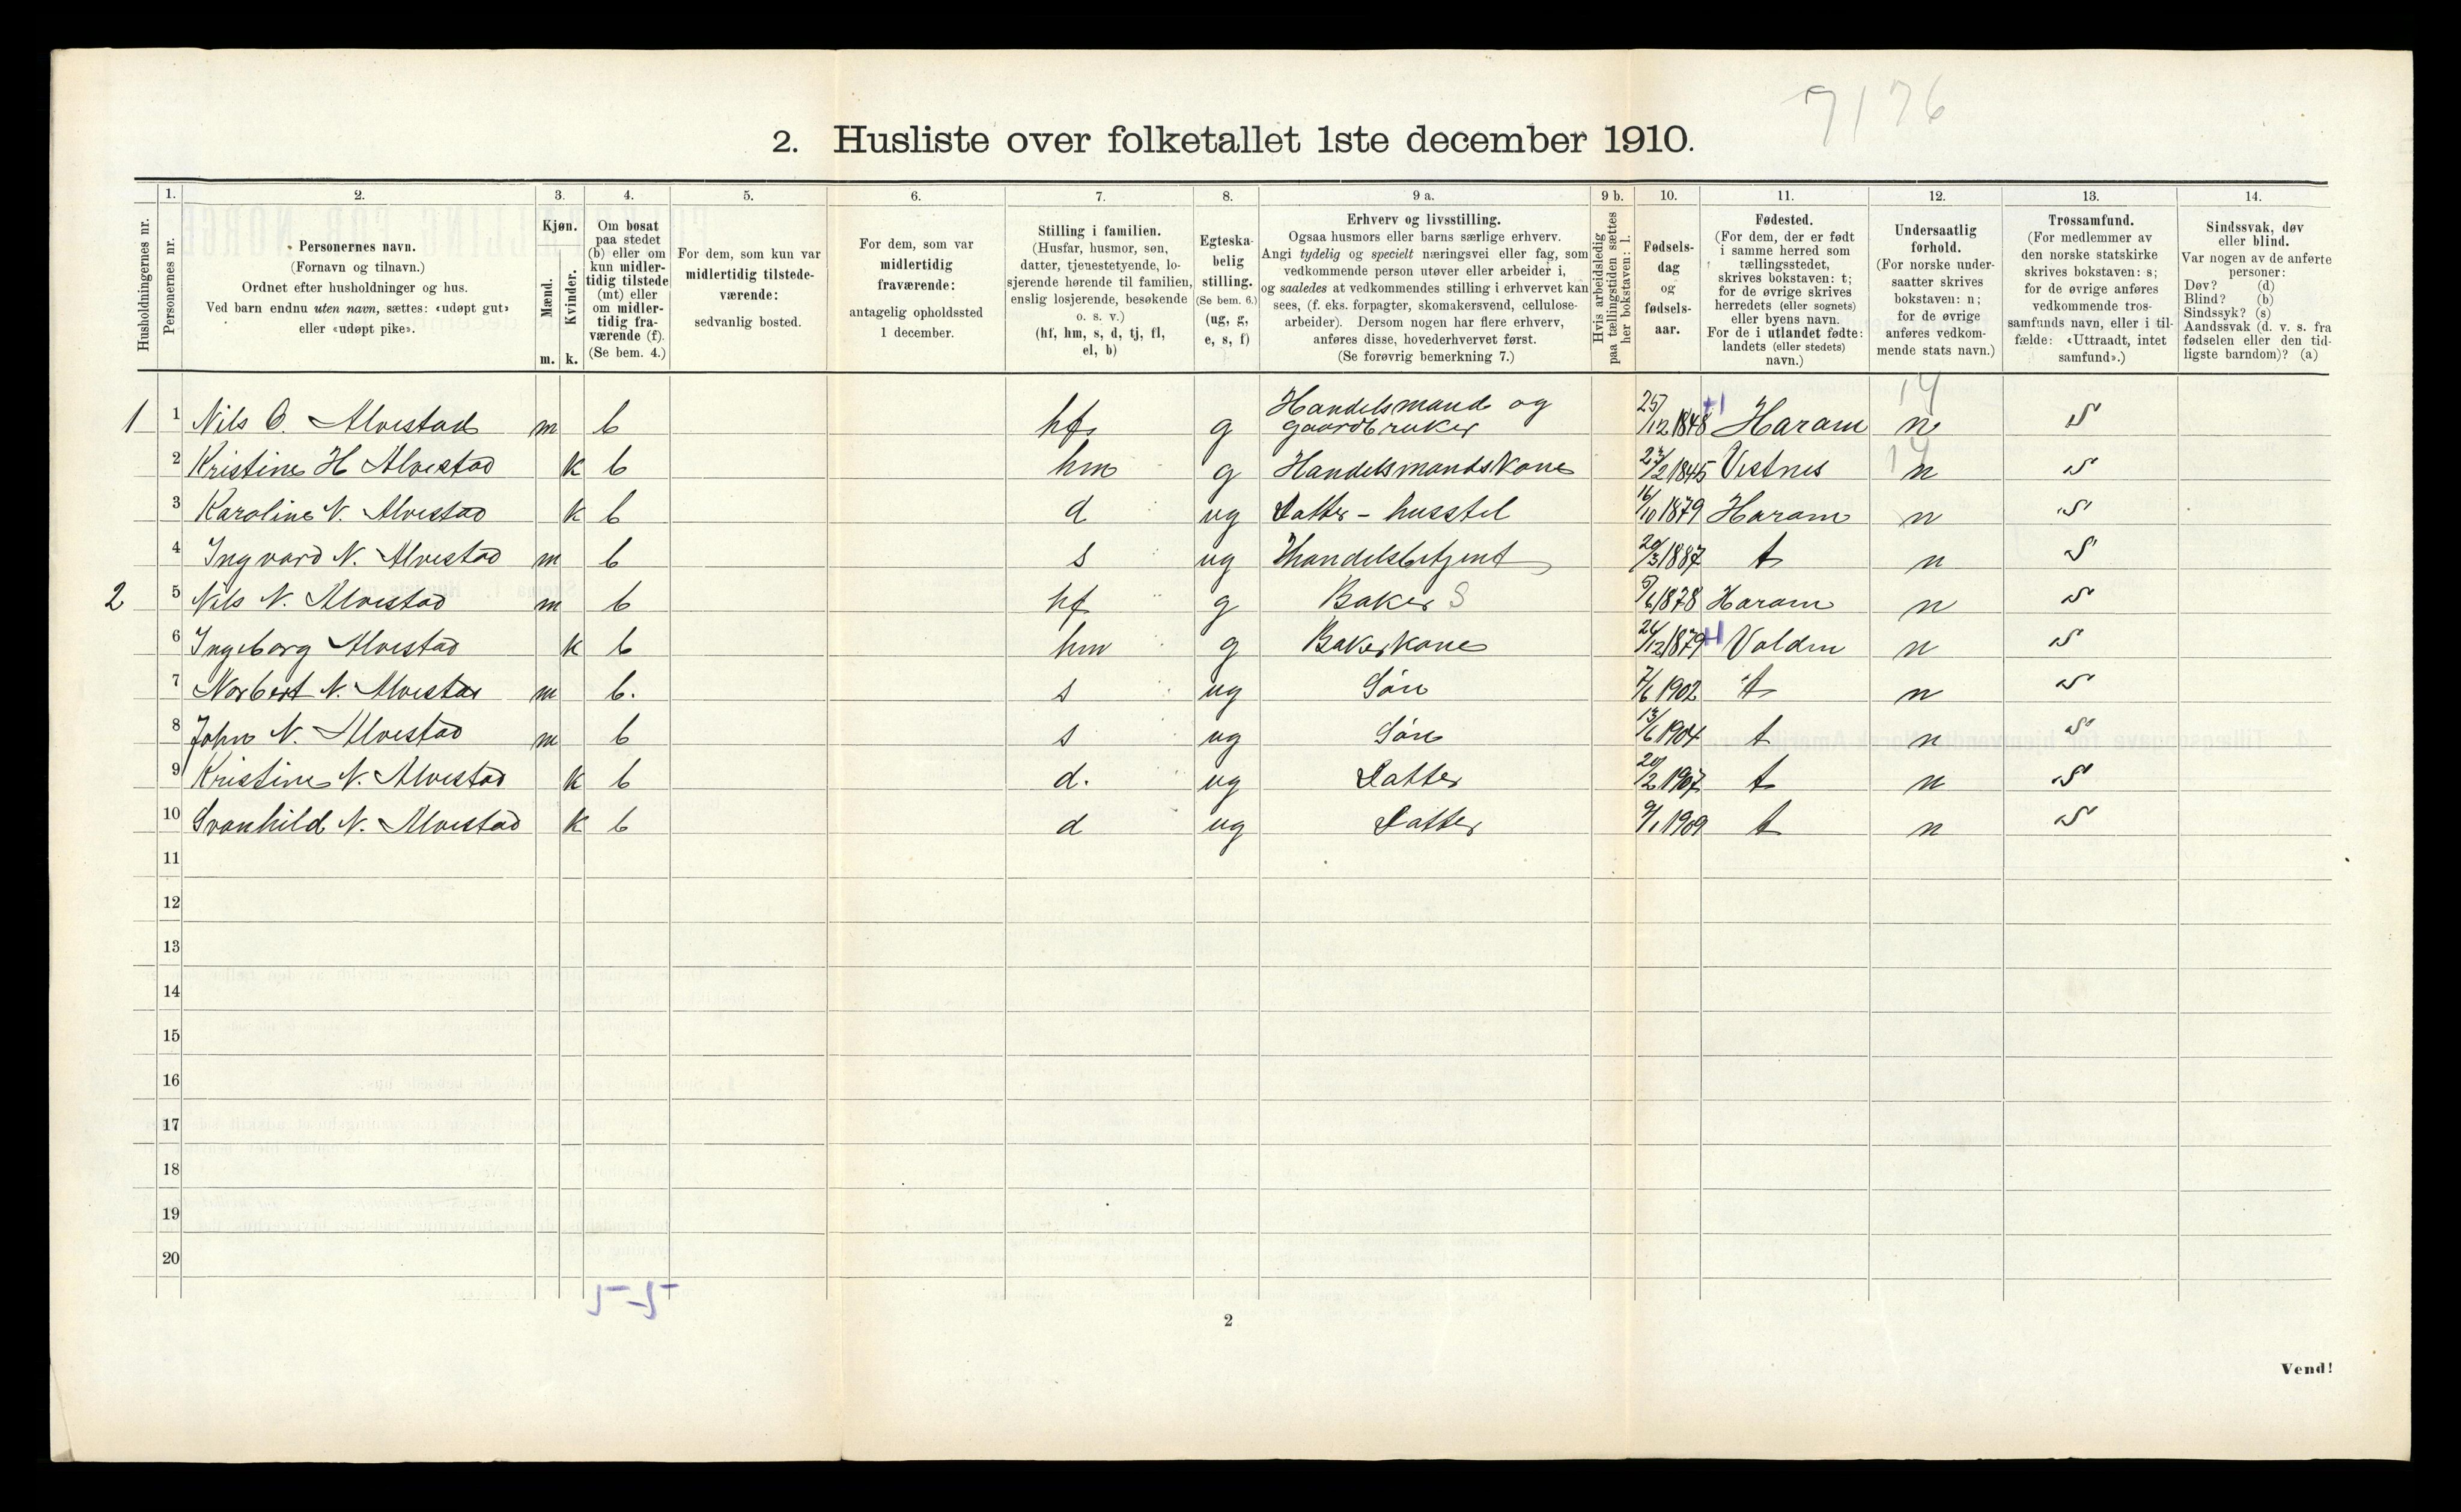 7176
2. Husliste over folketallet 1ste december 1910.
Husholdningernes nr.
1.
Personernes nr.
2.
Personernes navn.
(Fornavn og tilnavn.)
Ordnet efter husholdninger og hus.
Ved barn endnu uten navn, sættes: «udøpt gut»
eller «udøpt pike».
3.
Kjøn.
Mænd.
Kvinder.
m. k.
4.
Om bosat
paa stedet
(b) eller om
kun midler-
tidig tilstede
(mt) eller
om midler-
tidig fra-
værende (f).
(Se bem. 4.)
5.
For dem, som kun var
midlertidig tilstede-
værende:
sedvanlig bosted.
6.
For dem, som var
midlertidig
fraværende:
antagelig opholdssted
1 december.
7.
Stilling i familien.
(Husfar, husmor, søn,
datter, tjenestetyende, lo-
sjerende hørende til familien,
enslig losjerende, besøkende
o. s. v.)
(hf, hm, s, d, tj, fl,
el, b)
8.
Egteska-
belig
stilling.
(Se bem. 6.)
(ug, g,
e, s, f)
9 a.
Erhverv og livsstilling.
Ogsaa husmors eller barns særlige erhverv.
Angi tydelig og specielt næringsvei eller fag, som
vedkommende person utøver eller arbeider i,
og saaledes at vedkommendes stilling i erhvervet kan
sees, (f. eks. forpagter, skomakersvend, cellulose-
arbeider). Dersom nogen har flere erhverv,
anføres disse, hovederhvervet først.
(Se forøvrig bemerkning 7.)
9 b.
Hvis arbeidsledig
paa tællingstiden sættes
her bokstaven: l.
10.
Fødsels-
dag
og
fødsels-
aar.
11.
Fødested.
(For dem, der er født
i samme herred som
tællingsstedet,
skrives bokstaven: t;
for de øvrige skrives
herredets (eller sognets)
eller byens navn.
For de i utlandet fødte:
landets (eller stedets)
navn.)
12.
Undersaatlig
forhold.
(For norske under-
saatter skrives
bokstaven: n;
for de øvrige
anføres vedkom-
mende stats navn.)
13.
Trossamfund.
(For medlemmer av
den norske statskirke
skrives bokstaven: s;
for de øvrige anføres
vedkommende tros-
samfunds navn, eller i til-
fælde: «Uttraadt, intet
samfund».)
14.
Sindssvak, døv
eller blind.
Var nogen av de anførte
personer:
Døv? (d)
Blind? (b)
Sindssyk? (s)
Aandssvak (d. v. s. fra
fødselen eller den tid-
ligste barndom)? (a)
1 1 Nils O. Alvestad m b hf g Handelsmand og gaardbruker 25/12 1848 Haram n S
2 Kristine H Alvestad k b hm g Handelsmandskone /2 1845 Vestnes n S
3 Karoline N. Alvestad k b d ug Datter - husstel 16/10 1879 Haram n S
4 Ingvard N. Alvestad m b s ug Handelsbetjent 20/3 1887 t n S
2 5 Nils N. Alvestad m b hf g Baker S 5/6 1878 Haram n S
6 Ingeborg Alvestad k b hm g Bakerkone 26/12 1879 Volden n S
7 Norbert N. Alvestad m b. s ug Søn 7/6 1902 t n S
8 John N. Alvestad m b s ug Søn 13/6 1904 t n S
9 Kristine N. Alvestad k b d. ug Datter 20/2 1907 t n S
10 Svanhild N. Alvestad k b d ug Datter 9/1 1909 t n S
11
12
13
14
15
16
17
18
19
20
5-5
2
Vend!